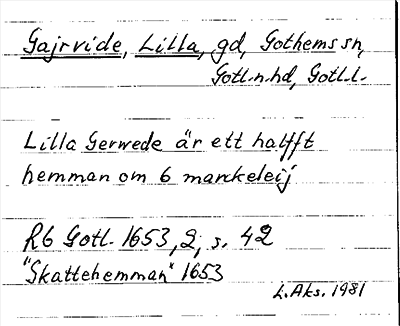 Gajrvide, Lilla, gd, Gothems sn,
Gotl. n. hd, Gotl. l.
Lilla Gerwede är ett halfft
hemman om 6 marckeleij
Rb Gotl. 1653, 2, s. 42
"Skattehemman" 1653
L. Aks. 1981